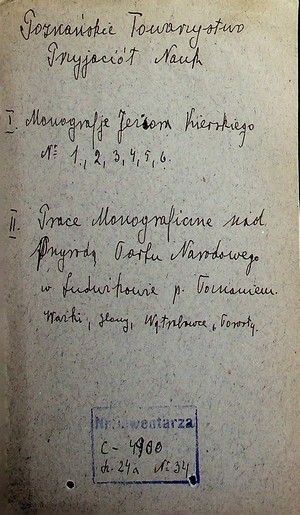 Poznańskie Towarzystwo
Przyjaciół Nauk
I. Monografje Jeziora Kierskiego
Nr. 1, 2, 3, 4, 5, 6.
II. Prace Monograficzne nad
Przyrodą Parku Narodowego
w Ludwikowie p. Poznaniem.
Ważki, Glony, Wątrobowce, Porosty.
Nr. inwentarza
C - 4900
sz. 24a Nr 34